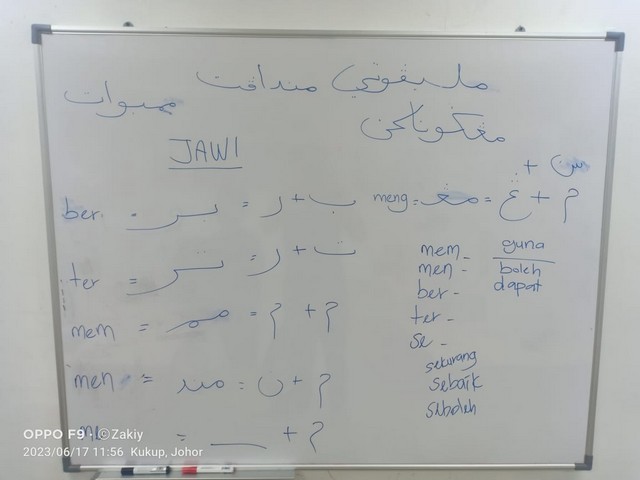 مليڤوتي منداڤت ممبوات
مڠݢوناکن
JAWI
س +
ب + ر = بر . ber
م + ڠ = مڠ = meng
ت + ر = تر = ter
م + م = مم = mem
م + ن = منـ = men
م + __ = me
mem - guna
men - boleh
ber - dapat
ter -
se -
sekurang
sebaik
seboleh
OPPO F9 · ©Zakiy
2023/06/17 11:56 Kukup, Johor